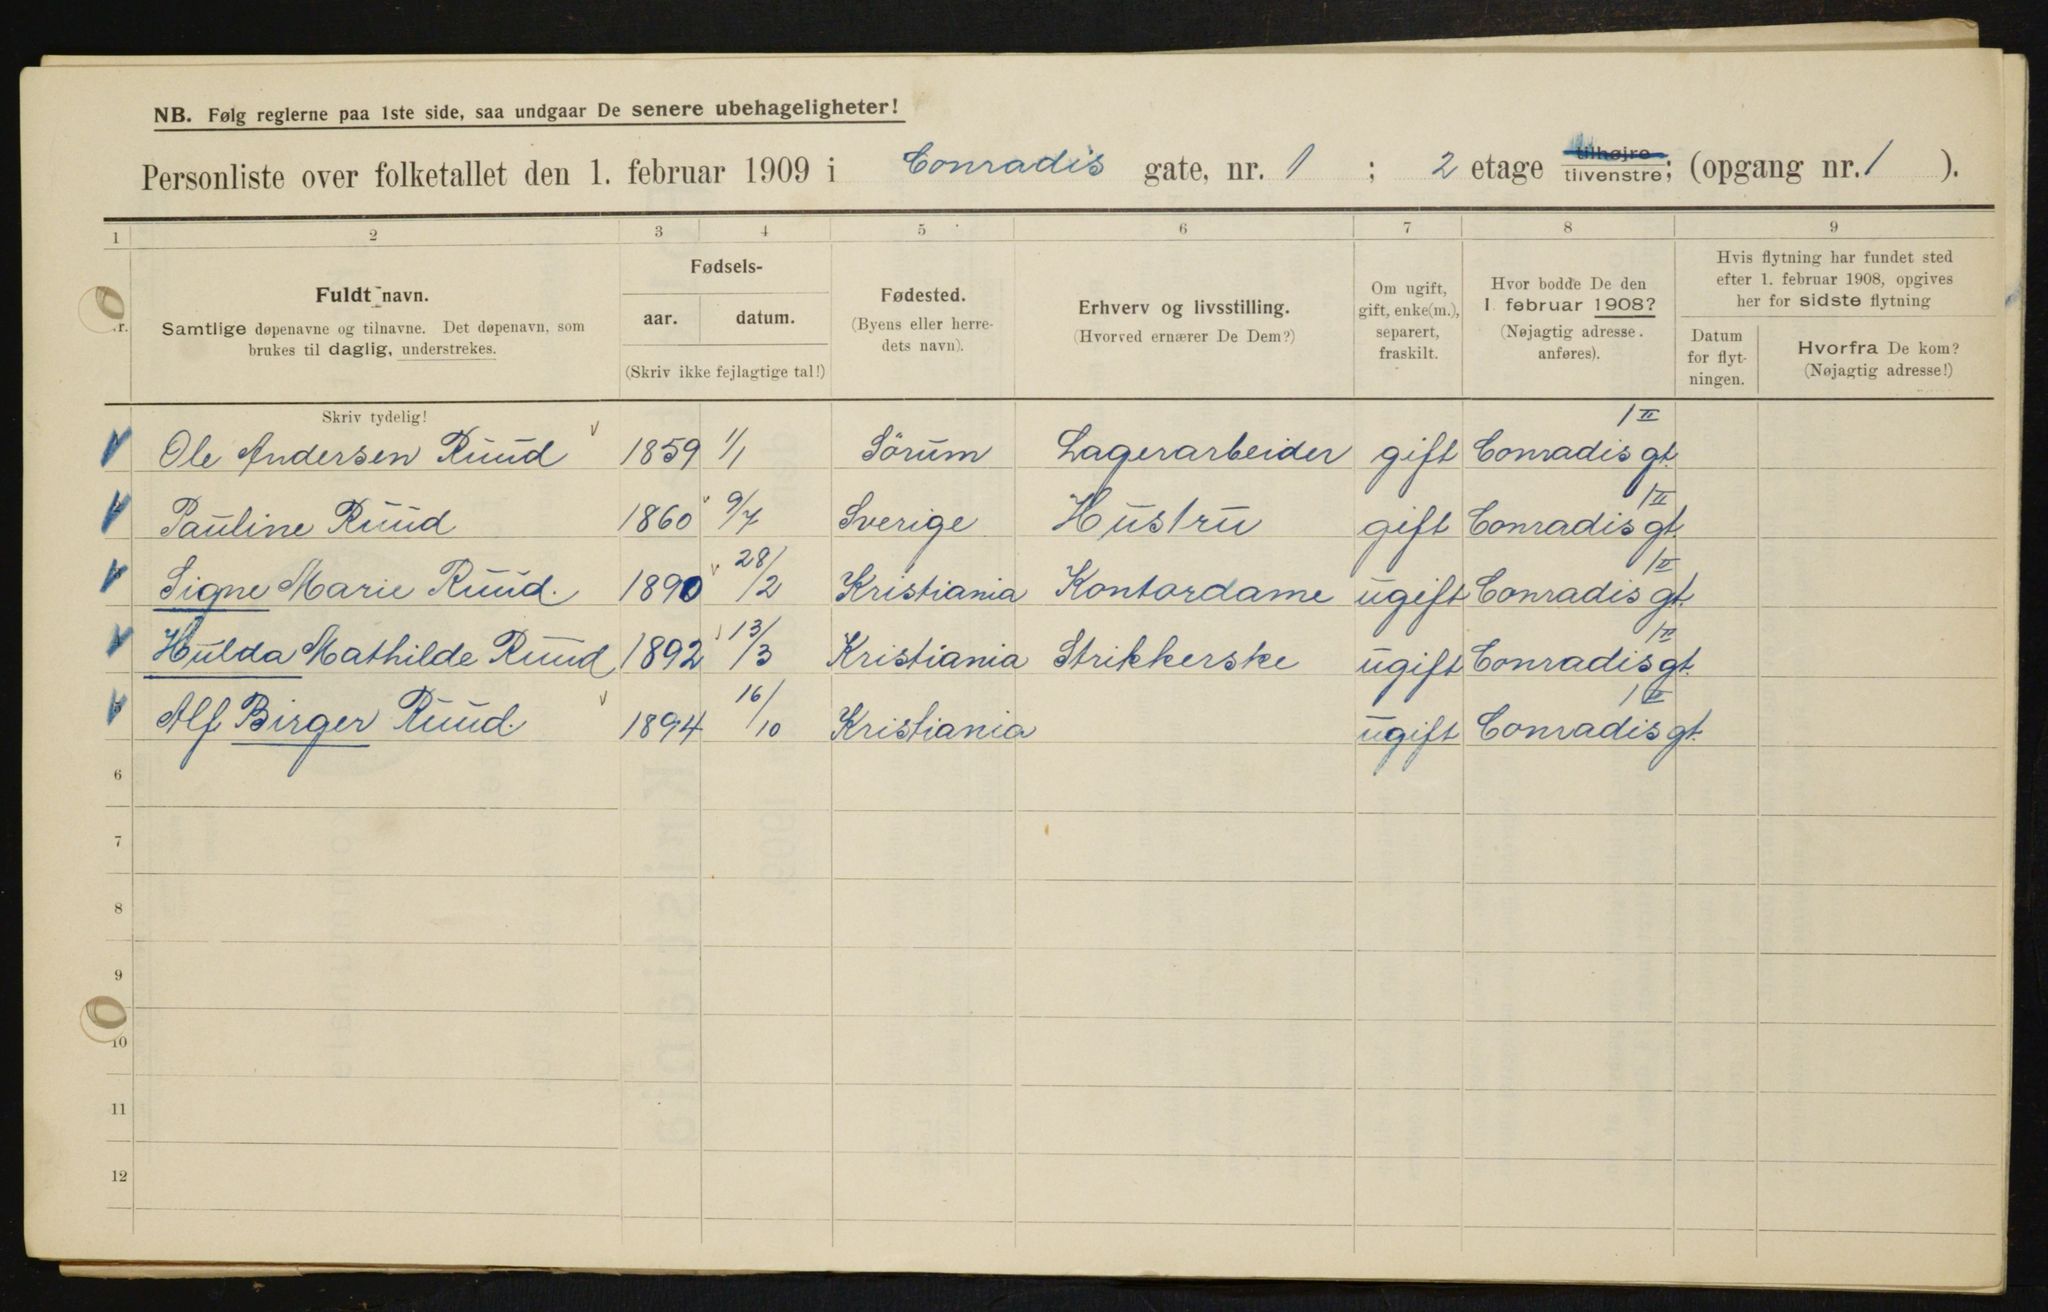 NB. Følg reglerne paa 1ste side, saa undgaar De senere ubehageligheter!
Personliste over folketallet den 1. februar 1909 i Conradis gate, nr. 1 ; 2 etage tilhøjre tilvenstre; (opgang nr. 1 ).
1 2 3 4 5 6 7 8 9
Nr. Fuldt navn. Samtlige døpenavne og tilnavne. Det døpenavn, som brukes til daglig, understrekes.
Fødsels- aar. datum. (Skriv ikke fejlagtige tal!)
Fødested. (Byens eller herredets navn).
Erhverv og livsstilling. (Hvorved ernærer De Dem?)
Om ugift, gift, enke(m.), separert, fraskilt.
Hvor bodde De den 1. februar 1908? (Nøjagtig adresse anføres).
Hvis flytning har fundet sted efter 1. februar 1908, opgives her for sidste flytning
Datum for flytningen. Hvorfra De kom? (Nøjagtig adresse!)
Skriv tydelig!
Ole Andersen Ruud 1859 1/1 Sörum Lagerarbeider gift Conradis gt. 1 II
Pauline Ruud 1860 9/7 Sverige Hustru gift Conradis gt. 1 II
Signe Marie Ruud. 1890 28/2 Kristiania Kontordame ugift Conradis gt. 1 II
Hulda Mathilde Ruud 1892 13/3 Kristiania Strikkerske ugift Conradis gt. 1 II
Alf Birger Ruud. 1894 16/10 Kristiania ugift Conradis gt. 1 II
6
7
8
9
10
11
12